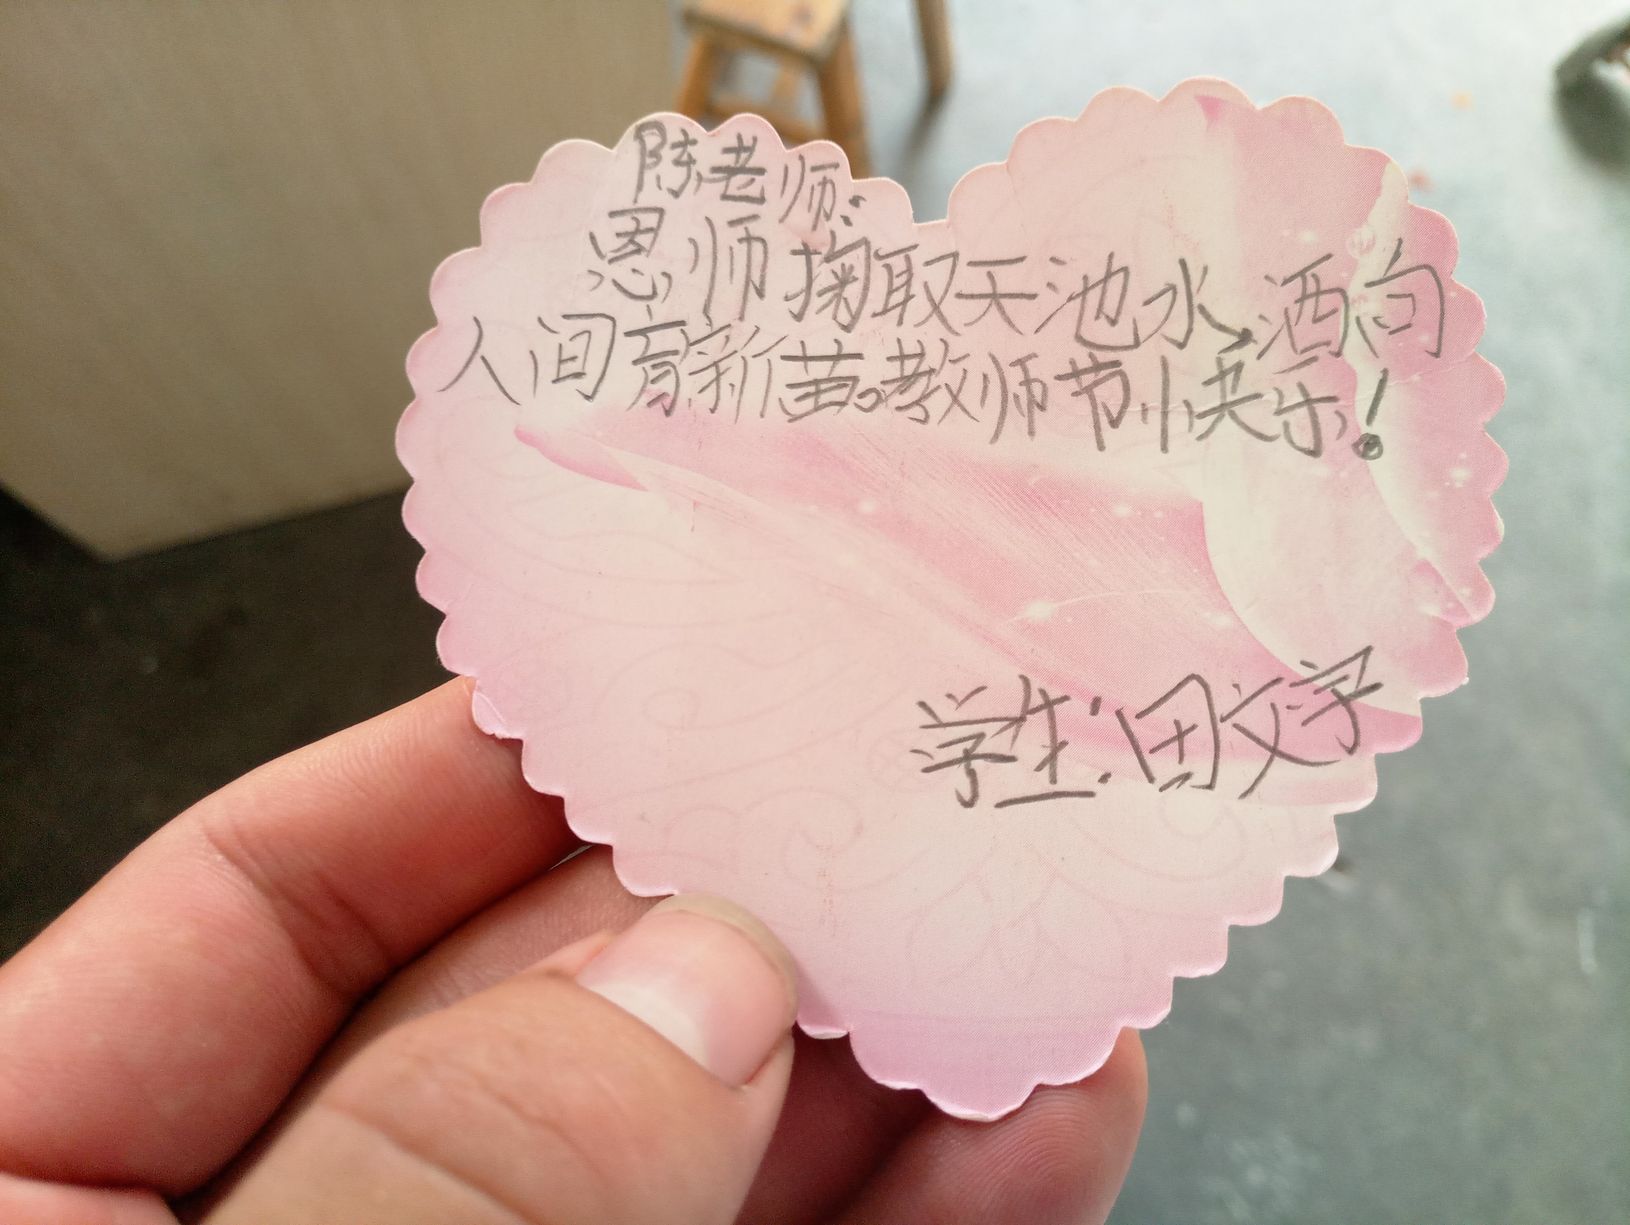 陈老师:
恩师掬取天池水,洒向
人间育新苗。教师节快乐!
学生:田文字